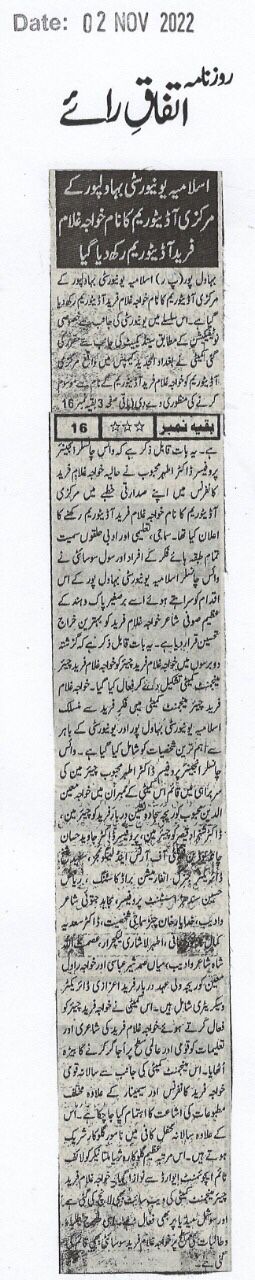 Date: 02 NOV 2022
روزنامہ
اتفاقِ رائے
اسلامیہ یونیورسٹی بہاولپور کے
مرکزی آڈیٹوریم کا نام خواجہ غلام
فرید آڈیٹوریم رکھ دیا گیا
بہاول پور (پ ر) اسلامیہ یونیورسٹی بہاولپور کے
مرکزی آڈیٹوریم کا نام خواجہ غلام فرید آڈیٹوریم رکھ دیا
گیا ہے۔ اس سلسلے میں یونیورسٹی کی جانب سے
نوٹیفکیشن کے مطابق سینڈیکیٹ کی جانب سے
کمیٹی نے بغداد الجدید کیمپس میں واقع مرکزی
آڈیٹوریم کو خواجہ غلام فرید آڈیٹوریم کے نام سے موسوم
کرنے کی منظوری دے دی (باقی صفحہ 3 بقیہ نمبر 16
بقیہ نمبر ☆☆☆ 16
ہے۔ یہ بات قابل ذکر ہے کہ وائس چانسلر انجینئر
پروفیسر ڈاکٹر اطہر محبوب نے حالیہ خواجہ غلام فرید
کانفرنس میں اپنے صدارتی خطبے میں مرکزی
آڈیٹوریم کا نام خواجہ غلام فرید آڈیٹوریم رکھنے کا
اعلان کیا تھا۔ سماجی، تعلیمی اور ادبی حلقوں سمیت
تمام طبقہ ہائے فکر کے افراد اور سول سوسائٹی نے
وائس چانسلر اسلامیہ یونیورسٹی بہاول پور کے اس
اقدام کو سراہتے ہوئے اسے برصغیر پاک و ہند کے
عظیم صوفی شاعر خواجہ غلام فرید کو بہترین خراج
تحسین قرار دیا ہے۔ یہ بات قابل ذکر ہے کہ گزشتہ
دو برسوں میں خواجہ غلام فرید چیئر کو خواجہ غلام فرید چیئر
مینجمنٹ کمیٹی تشکیل دے کر فعال کیا گیا۔ خواجہ غلام
فرید چیئر مینجمنٹ کمیٹی میں فکر فرید سے منسلک
اسلامیہ یونیورسٹی بہاول پور اور یونیورسٹی کے باہر
سے اہم ترین شخصیات کو شامل کیا گیا ہے۔ وائس
چانسلر انجینئر پروفیسر ڈاکٹر اطہر محبوب چیئرمین کی
سربراہی میں قائم اس کمیٹی کے ممبران میں خواجہ معین
الدین محبوب کوریجہ سجادہ نشین دربار فرید کو چیئرمین،
پروفیسر ڈاکٹر جاوید حسان
فیکلٹی آف آرٹس اینڈ لینگویجز،
انفارمیشن براڈکاسٹنگ، ریاض
حسین سندھڑ، اسسٹنٹ پروفیسر، مجاہد جتوئی شاعر
و ادیب، خدایار خان چنڑ سماجی شخصیت، ڈاکٹر سعدیہ
کمال اظہر لاشاری لیکچرار، عصمت اللہ
شاہ شاعر و ادیب، میاں صمد شیر عباسی اور خواجہ راول
معین کوریجہ ولی عہد دربار فرید اعزازی ڈائریکٹر
و سیکریٹری شامل ہیں۔ اس کمیٹی نے خواجہ فرید چیئر کو
فعال کرتے ہوئے خواجہ غلام فرید کی شاعری اور
تعلیمات کو قومی اور عالمی سطح پر اجاگر کرنے کا بیڑہ
اٹھایا۔ اس مینجمنٹ کمیٹی کی جانب سے سالانہ قومی
خواجہ فرید کانفرنس اور سیمینار کے علاوہ مختلف
مطبوعات کی اشاعت کا اہتمام کیا جا چکا ہے۔ اس
کے علاوہ سالانہ محفل کافی میں نامور گلوکار شریک
ہوتے ہیں۔ اس مرتبہ عظیم گلوکارہ ثریا ملتانیکر کو لائف
ٹائم اچیومنٹ ایوارڈ سے نوازا گیا۔ خواجہ غلام فرید
چیئر مینجمنٹ کمیٹی کی ویب سائٹ بھی لانچ کی گئی ہے
اور سوشل میڈیا پر بھی فعال ہے۔ اسی طرح طلباء
و طالبات کی سطح پر خواجہ غلام فرید سوسائٹی بھی قائم کی
گئی ہے۔